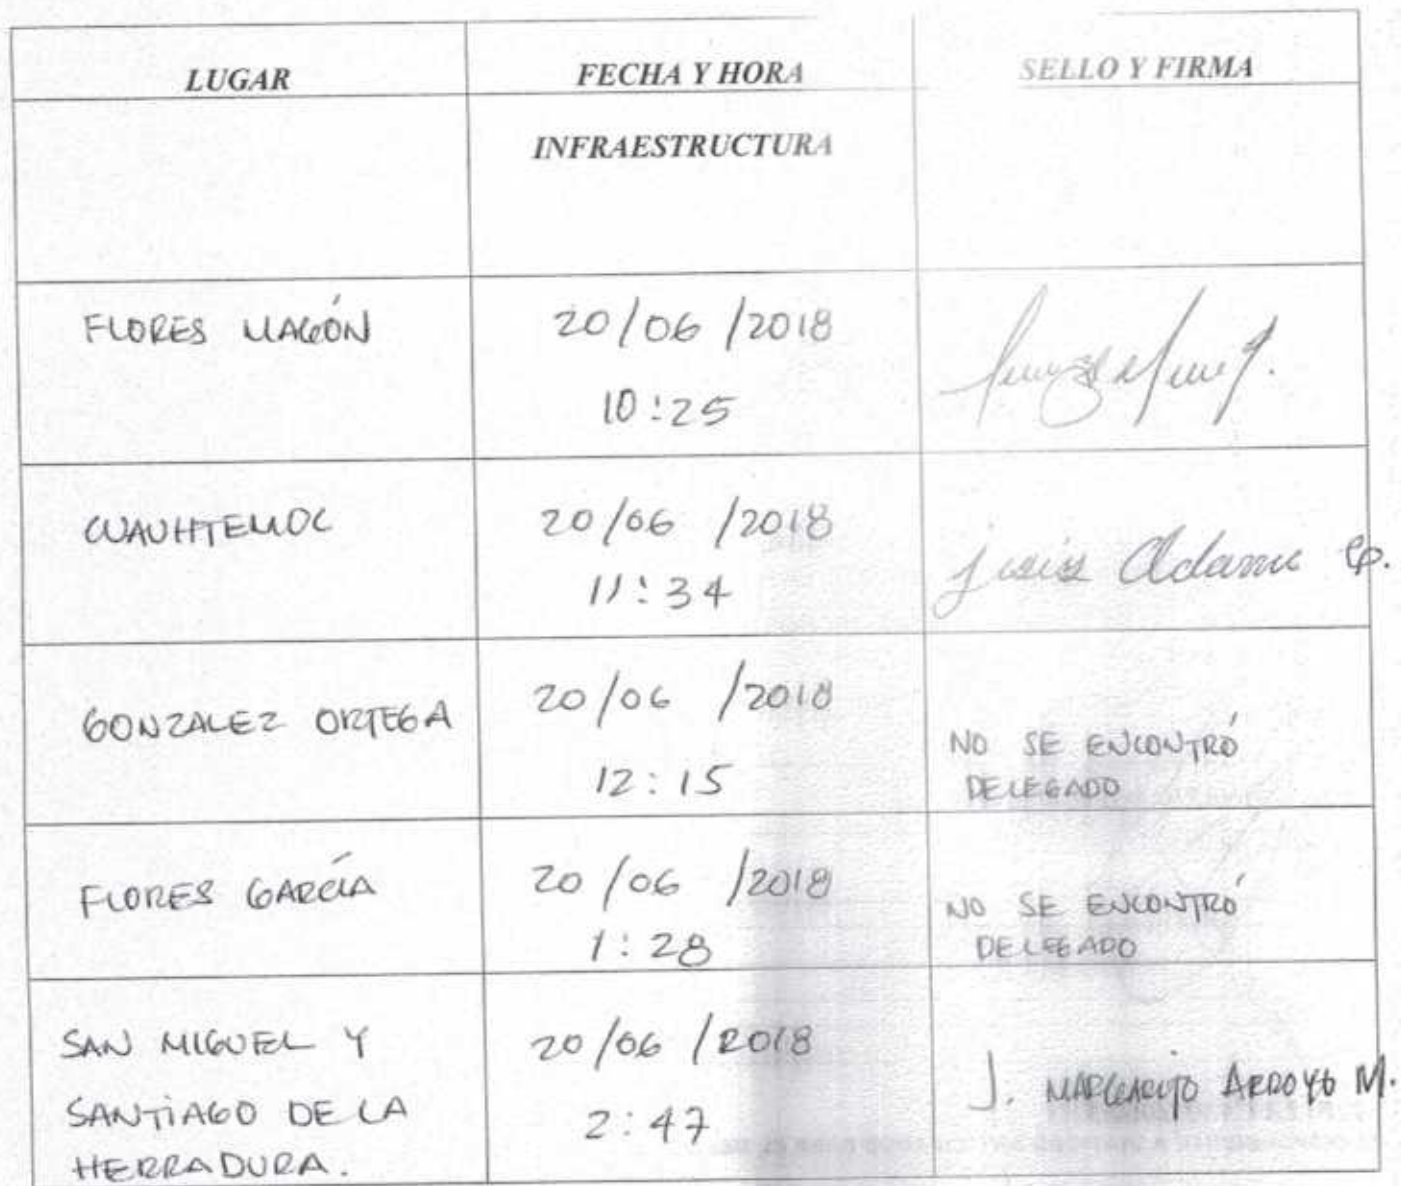 LUGAR
FECHA Y HORA
SELLO Y FIRMA
INFRAESTRUCTURA
FLORES MAGÓN
20/06/2018
10:25
CUAUHTEMOC
20/06/2018
11:34
Adame
GONZALEZ ORTEGA
20/06/2018
12:15
NO SE ENCONTRÓ
DELEGADO
FLORES GARCÍA
20/06/2018
1:28
NO SE ENCONTRÓ
DELEGADO
SAN MIGUEL Y
SANTIAGO DE LA
HERRADURA.
20/06/2018
2:47
J. MARGARITO ARROYO M.